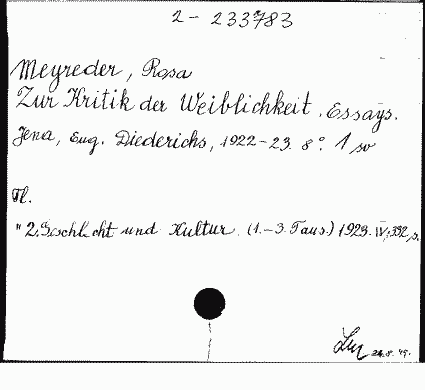 2-233783
Meyreder, Rosa
Zur Kritik der Weiblichkeit. Essays.
Jena, Eug. Diederichs, 1922-23. 8°. 1 sv
Tl.
" 2. Geschlecht und Kultur. (1.-3. Taus.) 1923. IV, 332, s.
24.8.49.